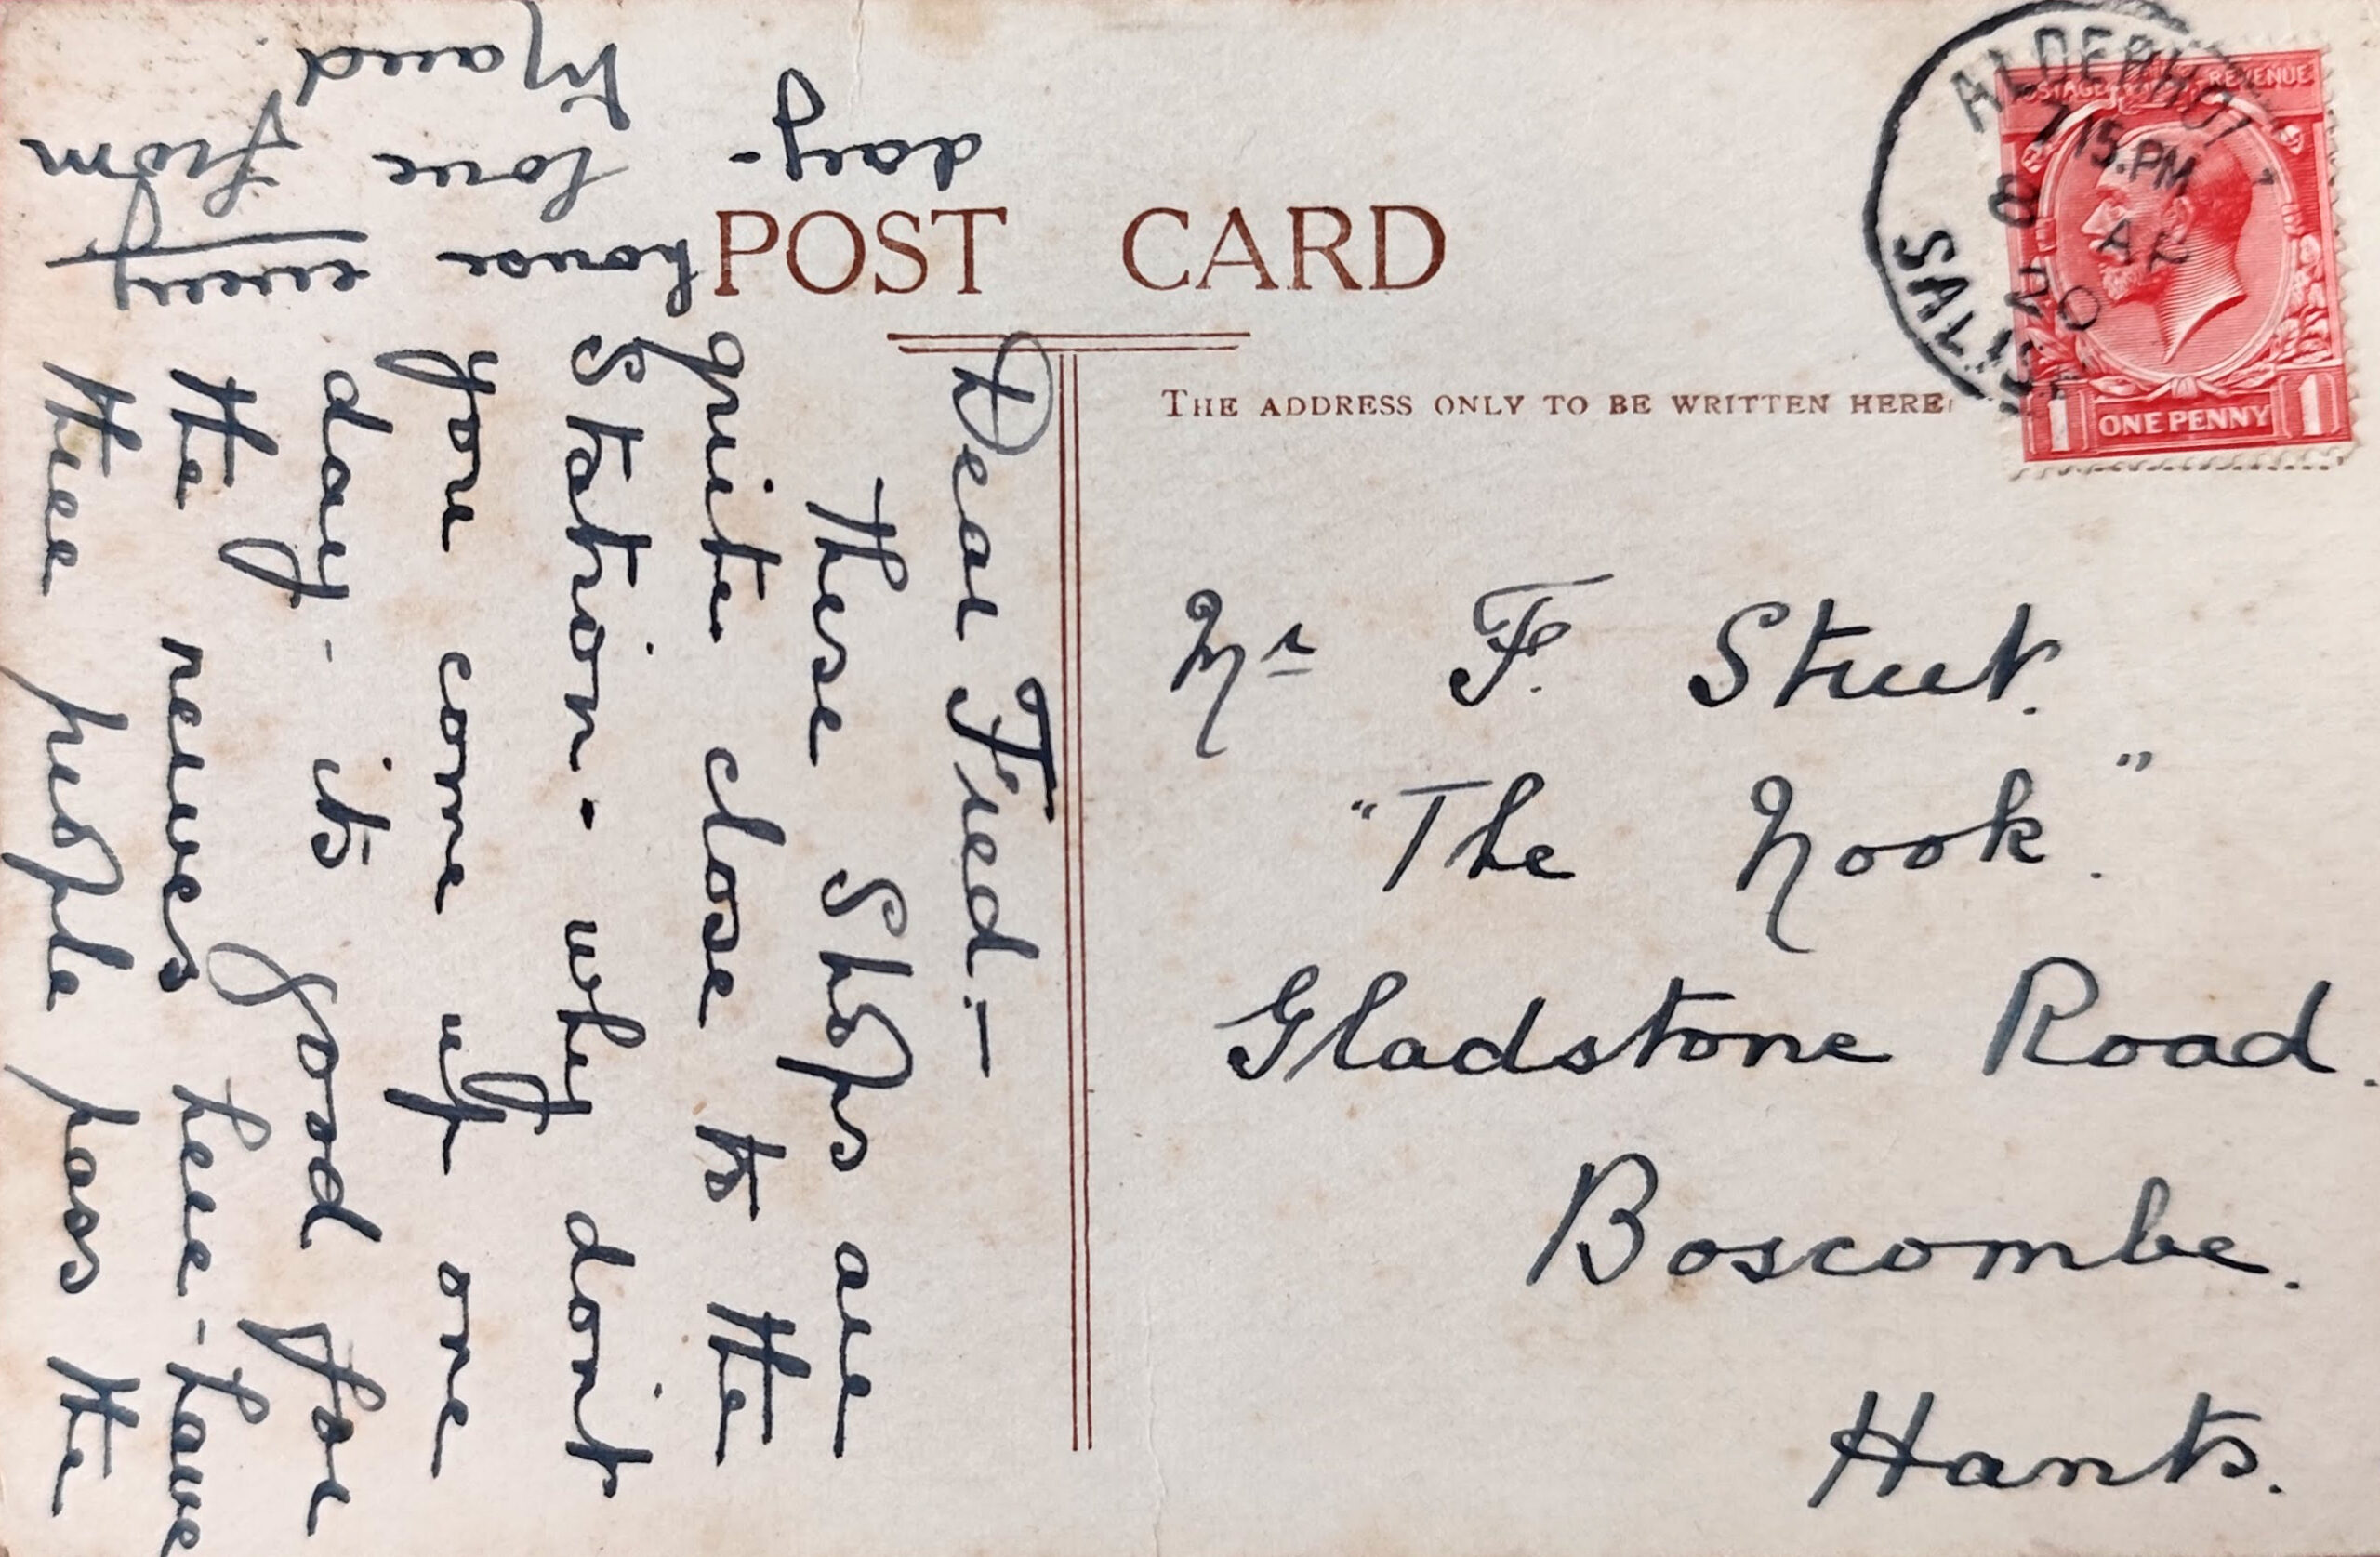 POST CARD
THE ADDRESS ONLY TO BE WRITTEN HERE
ALDERHOLT
7 15.PM
8 AP
20
SALISB
POSTAGE REVENUE
1 ONE PENNY 1
Dear Fred.—
These Shops are
quite close to the
Station. why don't
you come up one
day - its good for
the nerves here - have
thee people pass the
house every
day. love from
Maud
Mr F. Street.
"The Nook."
Gladstone Road.
Boscombe.
Hants.